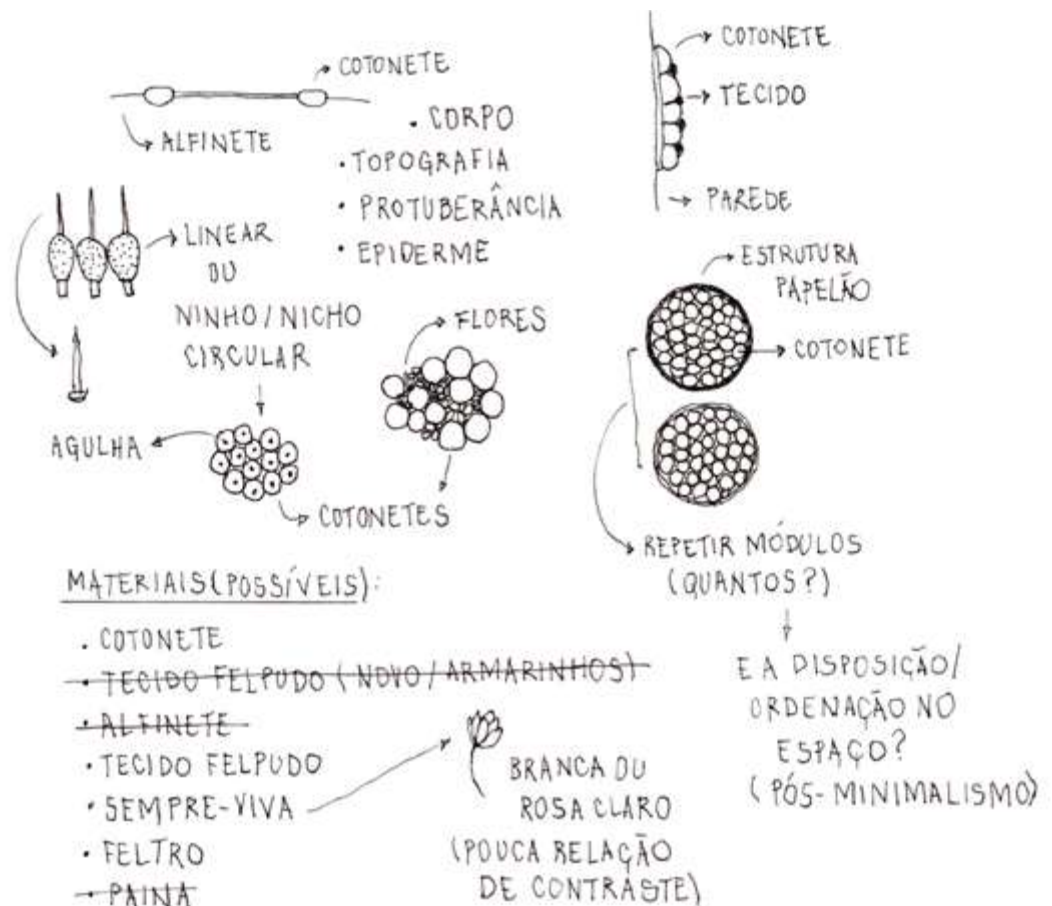 COTONETE
ALFINETE
. CORPO
• TOPOGRAFIA
• PROTUBERÂNCIA
• EPIDERME
COTONETE
TECIDO
PAREDE
LINEAR
OU
NINHO/NICHO
CIRCULAR
AGULHA
FLORES
COTONETES
ESTRUTURA
PAPELÃO
COTONETE
REPETIR MÓDULOS
(QUANTOS?)
E A DISPOSIÇÃO/
ORDENAÇÃO NO
ESPAÇO?
(PÓS-MINIMALISMO)
MATERIAIS (POSSÍVEIS):
. COTONETE
• TECIDO FELPUDO (NOVO/ARMARINHOS)
• ALFINETE
• TECIDO FELPUDO
• SEMPRE-VIVA
• FELTRO
• PAINA
BRANCA OU
ROSA CLARO
(POUCA RELAÇÃO
DE CONTRASTE)